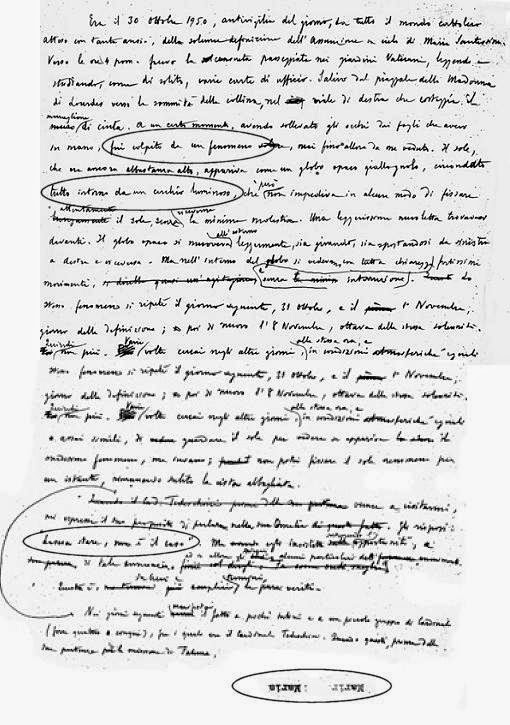 Era il 30 ottobre 1950, antivigilia del giorno, da tutto il mondo cattolico
atteso con tanta ansia, della solenne definizione dell'Assunzione in cielo di Maria Santissima.
Verso le ore 4 pom. facevo la consueta passeggiata nei giardini Vaticani, leggendo e
studiando, come di solito, varie carte di ufficio. Salivo dal piazzale della Madonna
di Lourdes verso la sommità della collina, nel viale di destra che costeggia il
muraglione
di cinta. A un certo momento, avendo sollevato gli occhi dai fogli che avevo
in mano, fui colpito da un fenomeno, mai fino allora da me veduto. Il sole,
che era ancora abbastanza alto, appariva come un globo opaco giallognolo, circondato
tutto intorno da un cerchio luminoso, che però non impediva in alcun modo di fissare
attentamente il sole, senza riceverne la minima molestia. Una leggerissima nuvoletta trovavasi
davanti. Il globo opaco si muoveva all'esterno leggermente, sia girando, sia spostandosi da sinistra
a destra e viceversa. Ma nell'interno del globo si vedevano con tutta chiarezza fortissimi
movimenti, e senza interruzione. Lo
stesso fenomeno si ripeté il giorno seguente, 31 ottobre, e il 1° Novembre,
giorno della definizione; poi di nuovo l'8 Novembre, ottava della stessa solennità.
Quindi non più. Varie volte cercai negli altri giorni, alla stessa ora, e in condizioni atmosferiche eguali
stesso fenomeno si ripeté il giorno seguente, 31 ottobre, e il 1° Novembre,
giorno della definizione; poi di nuovo l'8 Novembre, ottava della stessa solennità.
Quindi non più. Varie volte cercai negli altri giorni, alla stessa ora, e in condizioni atmosferiche eguali
o assai simili, di guardare il sole per vedere se appariva il
medesimo fenomeno, ma invano; non potei fissare il sole nemmeno per
un istante, rimanendo subito la vista abbagliata.
Quando il Card. Tedeschini prima della sua partenza venne a visitarmi,
mi espresse il suo proposito di parlarne nella sua Omelia. Gli risposi:
"Lascia stare, non è il caso". Ma egli insistette, a
di tale annuncio, ed io allora gli alcuni particolari dell'
Questa è, in brevi e semplici termini, la pura verità.
Nei giorni seguenti il fatto a pochi intimi e a un piccolo gruppo di Cardinali
(forse quattro o cinque), fra i quali era il Cardinale Tedeschini. Quando questi, prima della
sua partenza per la missione di Fatima,
Maria